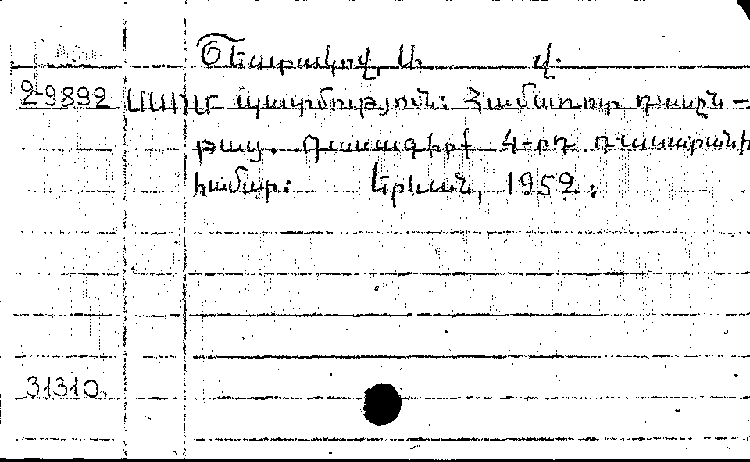 Շեստակով, Ա. վ.
29892 ՍՍՌՄ պատմություն: Համառոտ դասըն-
թաց. Դասագիրք 4-րդ դասարանի
համար: Երևան, 1952.
31310.